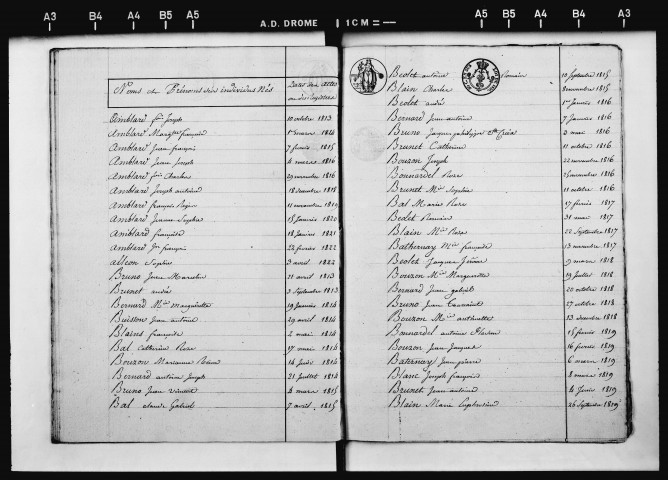 A3 B4 A4 B5 A5 A.D. DROME 1 CM A5 B5 A4 B4 A3
Noms et Prénoms des individus Nés
Dates des actes
ou des Registres
Amblard fois joseph 10 octobre 1813
Amblard Margte françoise 1er mars 1814
Amblard Jean françois 7 février 1815
Amblard Jean Joseph 4 mars 1816
Amblard fois Charles 29 novembre 1816
Amblard Joseph antoine 18 décembre 1818
Amblard françois Régis 11 novembre 1819
Amblard Jeanne Sophie 15 Janvier 1820
Amblard françoise 18 Janvier 1821
Amblard Jn françois 22 février 1822
Alléon Sophie 3 avril 1822
Bruno Jean Marcelin 21 avril 1813
Brunet andré 3 Septembre 1813
Bernard Mie margueritte 19 Janvier 1814
Buisson Jean antoine 29 avril 1814
Blains françoise 2 mai 1814
Bal Catherine Rose 17 mai 1814
Bouzon Marianne 14 Juin 1814
Bernard antoine Joseph 21 Juillet 1814
Bruno Jean vincent 4 mars 1815
Bal Claude Gabriel 7 avril 1815
Béolet antoine Romain 10 Septembre 1815
Blain Charles 8 novembre 1815
Béolet andré 1er Janvier 1816
Bernard Jean antoine 7 Janvier 1816
Bruno Jacques philippe 3 mai 1816
Brunet Catherine 11 octobre 1816
Bouzon Joseph 22 novembre 1816
Bonnardel Rose 25 novembre 1816
Brunet Mie Sophie 11 octobre 1816
Bal Marie Rose 17 février 1817
Béolet Romain 31 mai 1817
Blain Mie Rose 22 Septembre 1817
Bathernay Mie françoise 13 novembre 1817
Béolet Jacques Jérôme 9 mars 1818
Bouzon Mie Marguerite 19 Juillet 1818
Bernard Jean gabriel 20 octobre 1818
Bruno Jean 27 octobre 1818
Bouzon Mie antoinette 13 décembre 1818
Bonnardel antoine 15 février 1819
Bouzon Jean Jacques 16 février 1819
Baternay Jean pierre 6 mars 1819
Blanc Joseph françois 8 mars 1819
Brunet Jean antoine 4 Juin 1819
Blain Marie Euphrosine 26 Septembre 1819
A3 B4 A4 B5 A5 A5 B5 A4 B4 A3